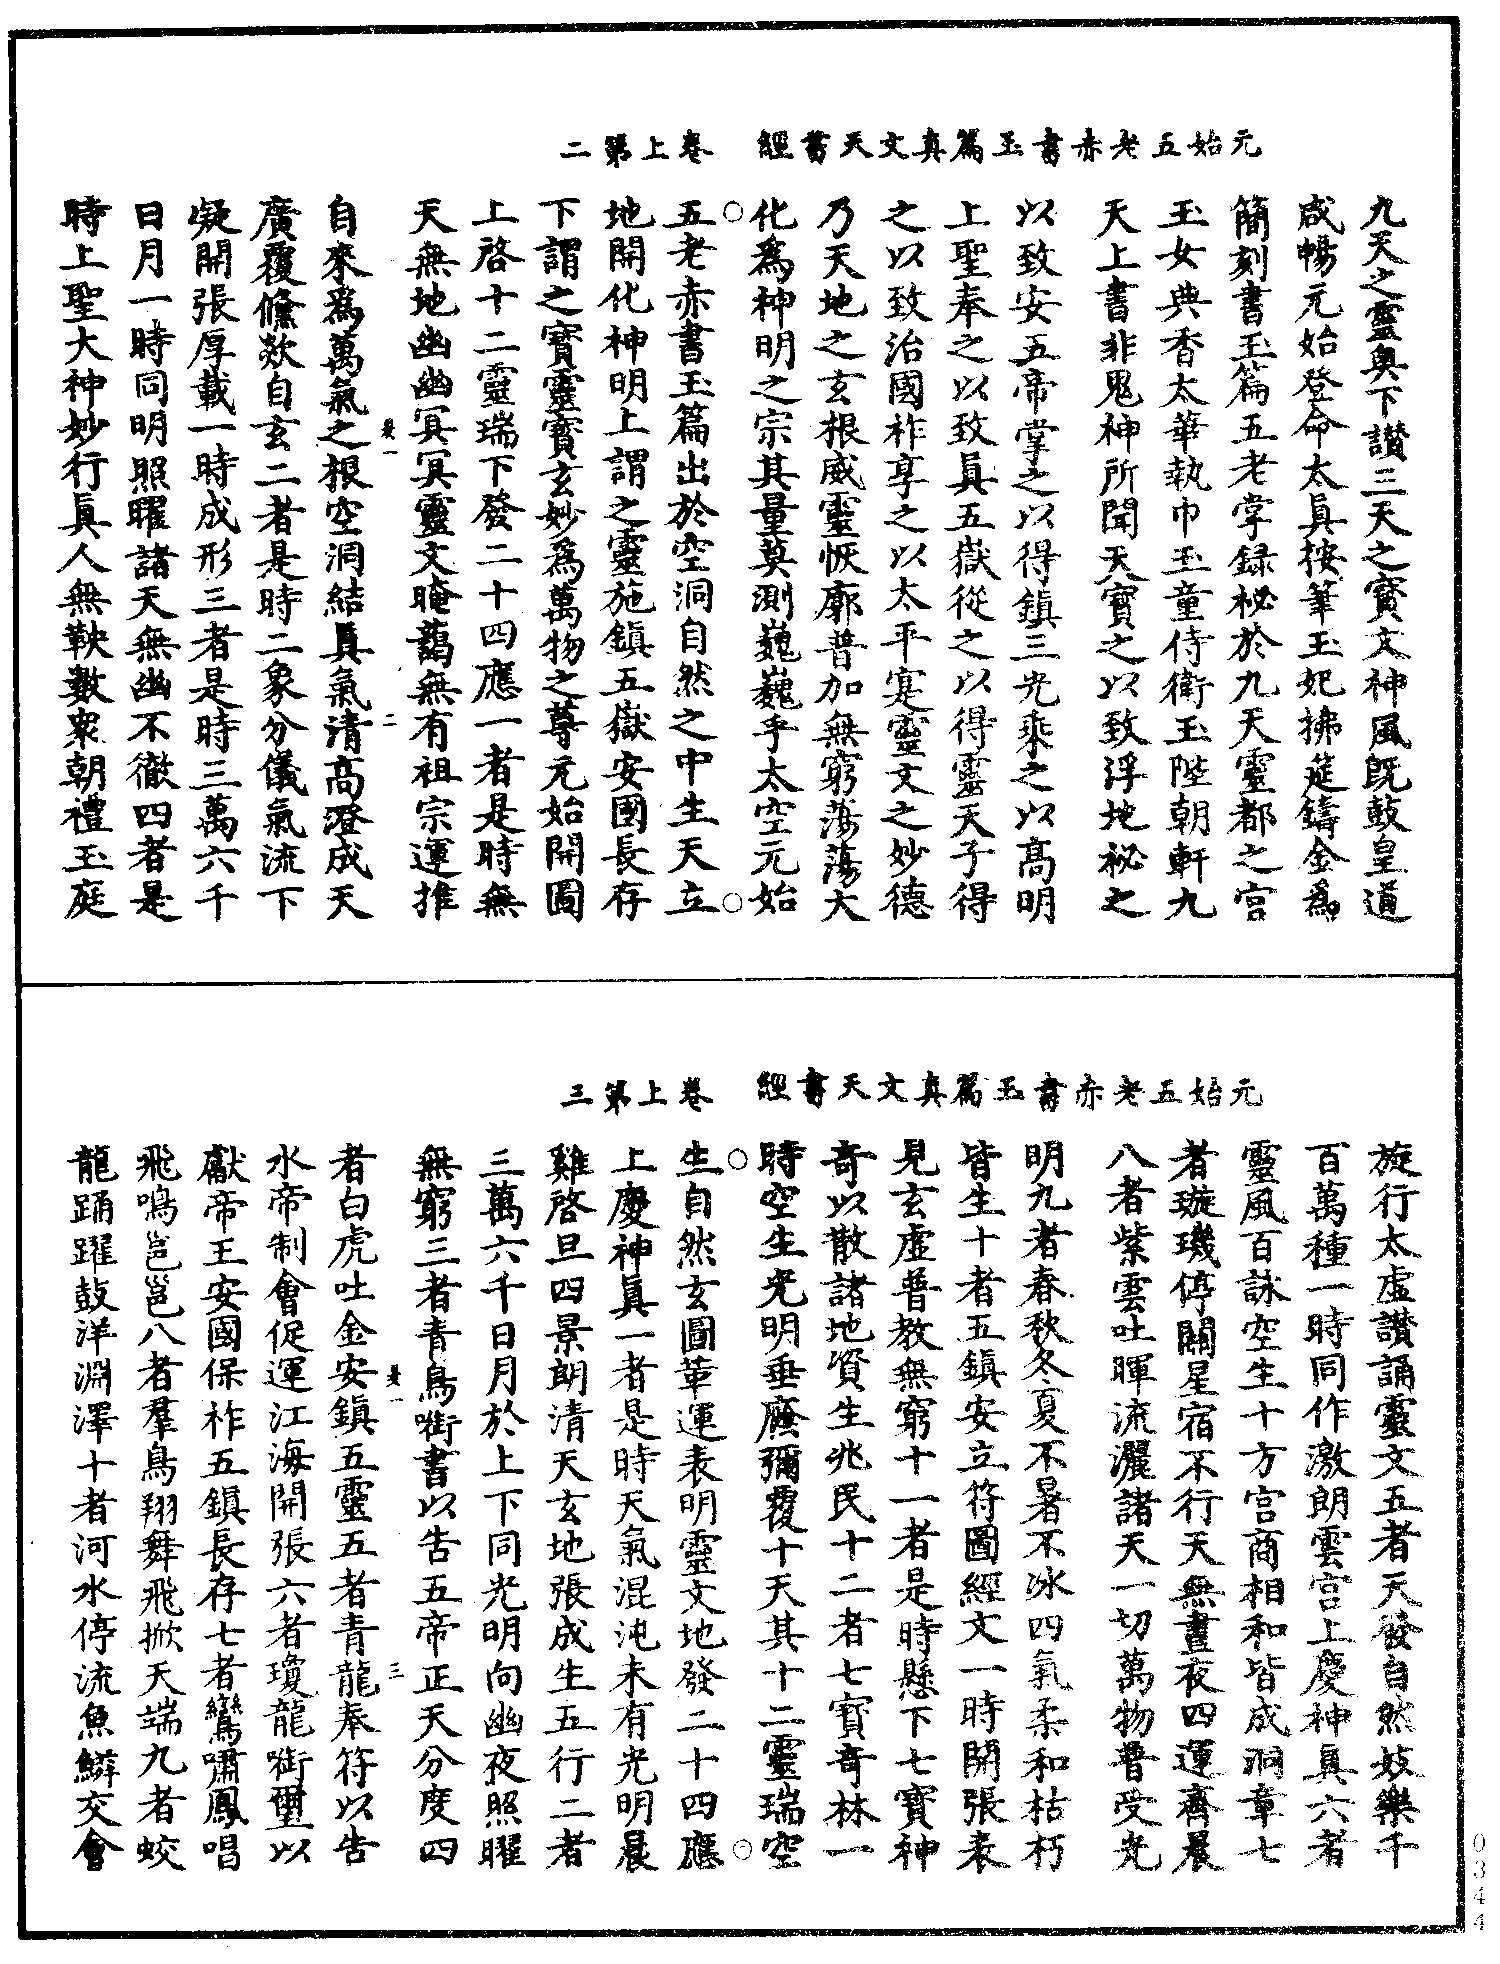 元始五老赤書玉篇真文天書經　卷上第二
九天之靈奥下讃三天之寶文神風既鼓皇道
咸暢元始登命太真按筆玉妃拂筵鑄金爲
簡刻書玉篇五老掌録祕於九天靈都之宫
玉女典香太華執巾玉童侍衛玉陛朝軒九
天上書非鬼神所聞天寶之以致浮地祕之
以致安五帝掌之以得鎮三光乘之以高明
上聖奉之以致真五嶽從之以得靈天子得
之以致治國祚享之以太平寔靈文之妙德
乃天地之玄根威靈恢廓普加無窮蕩蕩大
化爲神明之宗其量莫測巍巍乎太空元始
五老赤書玉篇出於空洞自然之中生天立
地開化神明上謂之靈施鎮五嶽安國長存
下謂之寶靈寶玄妙爲萬物之尊元始開圖
上啓十二靈瑞下發二十四應一者是時無
天無地幽幽冥冥靈文晻藹無有祖宗運推
晨一　二
自來爲萬氣之根空洞結真氣清高澄成天
廣覆儵欻自玄二者是時二象分儀氣流下
凝開張厚載一時成形三者是時三萬六千
日月一時同明照曜諸天無幽不徹四者是
時上聖大神妙行真人無鞅數衆朝禮玉庭
元始五老赤書玉篇真文天書經　卷上第三
旋行太虚讃誦靈文五者天發自然妓樂千
百萬種一時同作激朗雲宫上慶神真六者
靈風百詠空生十方宫商相和皆成洞章七
者璇璣停關星宿不行天無晝夜四運齊晨
八者紫雲吐暉流灑諸天一切萬物普受光
明九者春秋冬夏不暑不冰四氣柔和枯朽
皆生十者五鎮安立符圖經文一時開張表
見玄虚普教無窮十一者是時懸下七寶神
奇以散諸地資生兆民十二者七寶奇林一
時空生光明垂廕彌覆十天其十二靈瑞空
生自然玄圖革運表明靈文地發二十四應
上慶神真一者是時天氣混沌未有光明晨
雞啓旦四景朗清天玄地張成生五行二者
三萬六千日月於上下同光明向幽夜照曜
無窮三者青鳥銜書以告五帝正天分度四
晨一　三
者白虎吐金安鎮五靈五者青龍奉符以告
水帝制會促運江海開張六者瓊龍銜璽以
獻帝王安國保祚五鎮長存七者鸞嘯鳳唱
飛鳴邕邕八者羣鳥翔舞飛掀天端九者蛟
龍踊躍鼓洋淵澤十者河水停流魚鱗交會
0344